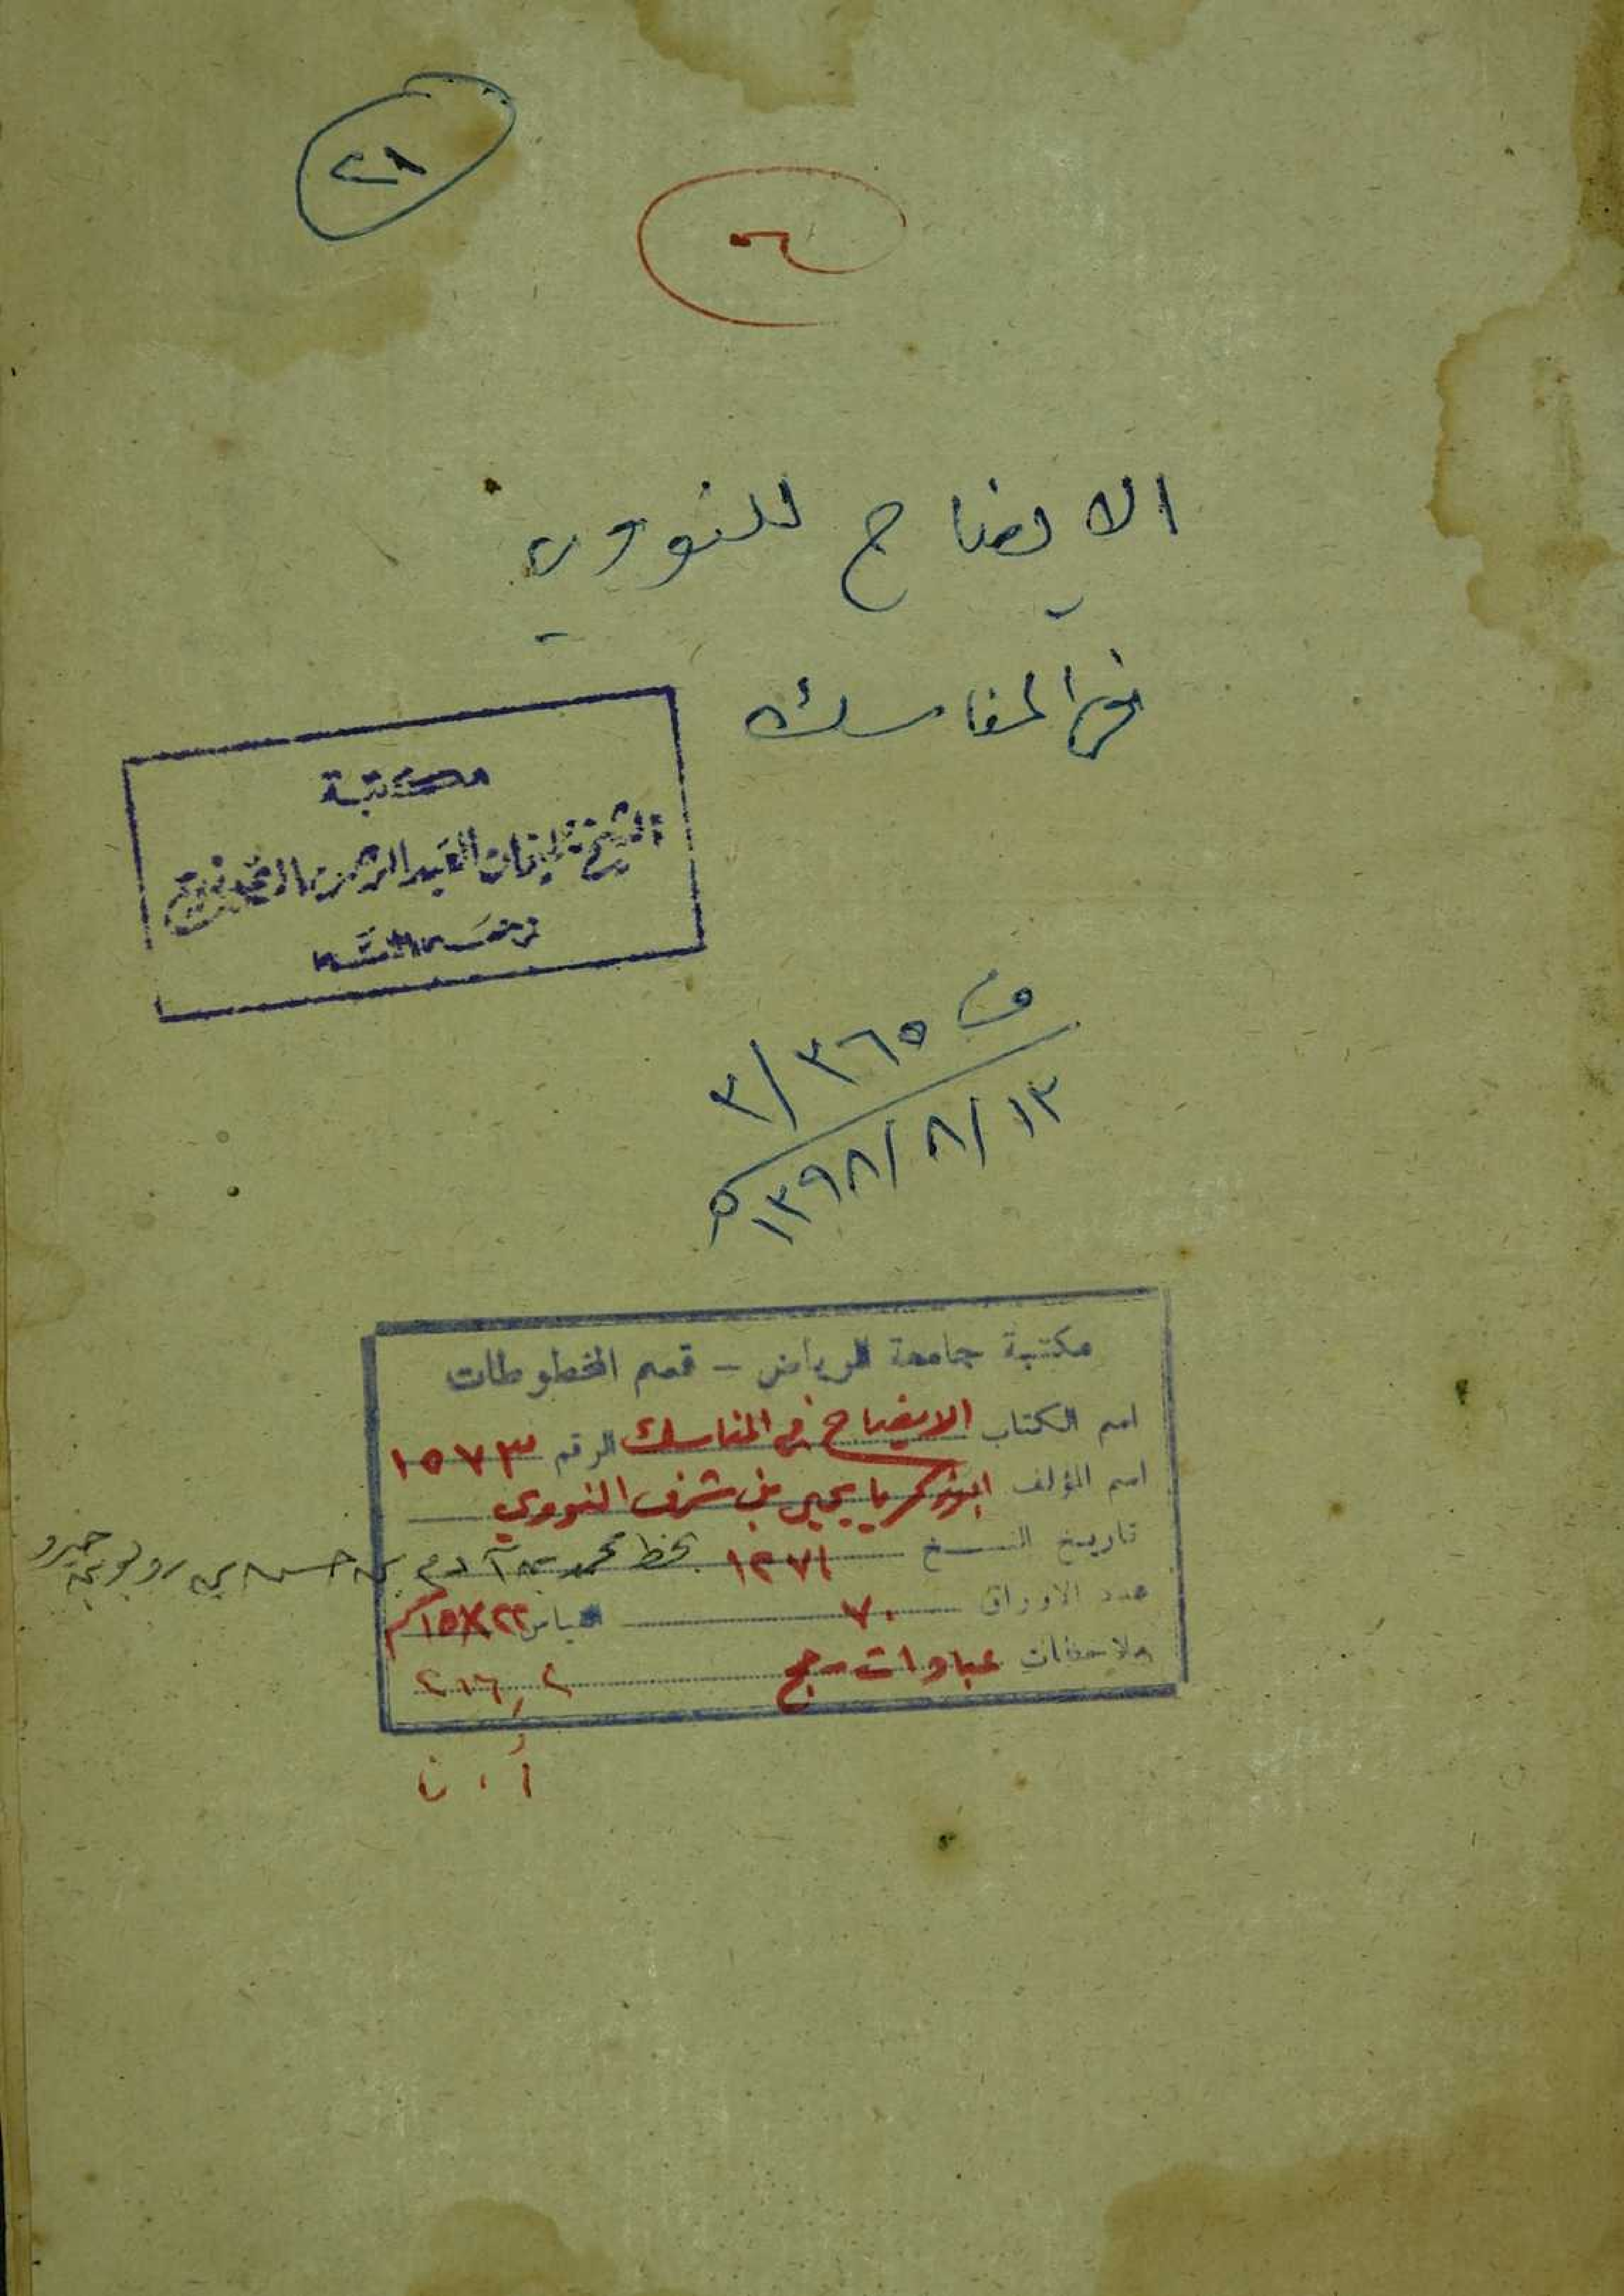 ٢٨
٤
الايضاح للنووي
في المناسك
مكتبة
الشيخ العبد الرحمن
ف ٣٦٥ / ٣
١٣ / ٨ / ١٣٩٨ هـ
مكتبة جامعة الرياض - قسم المخطوطات
اسم الكتاب الايضاح في المناسك الرقم ١٥٧٣
اسم المؤلف ابو زكريا يحيى بن شرف النووي
تاريخ النسخ ١٢٧١ بخط محمد بن آدم بن حسن بن
عدد الاوراق ٧٠ القياس ٢٢×١٥ سم
ملاحظات عبادات - حج ٢١٦,٤
أ . ن